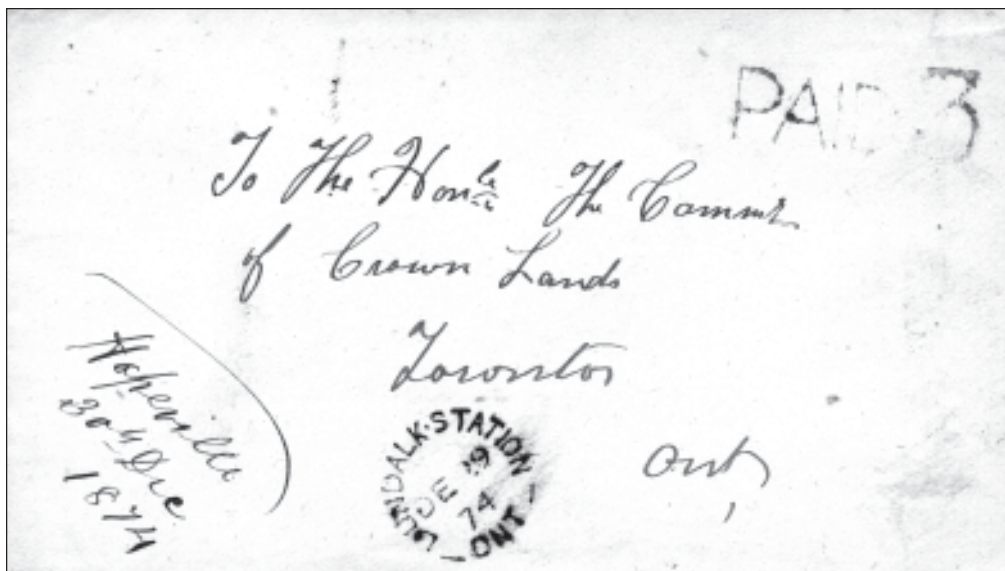 PAID 3
To The Honble The Commr
of Crown Lands
Toronto
Ont
Hopeville
30th Dec
1874
DUNDALK·STATION
DE 19
74
ONT